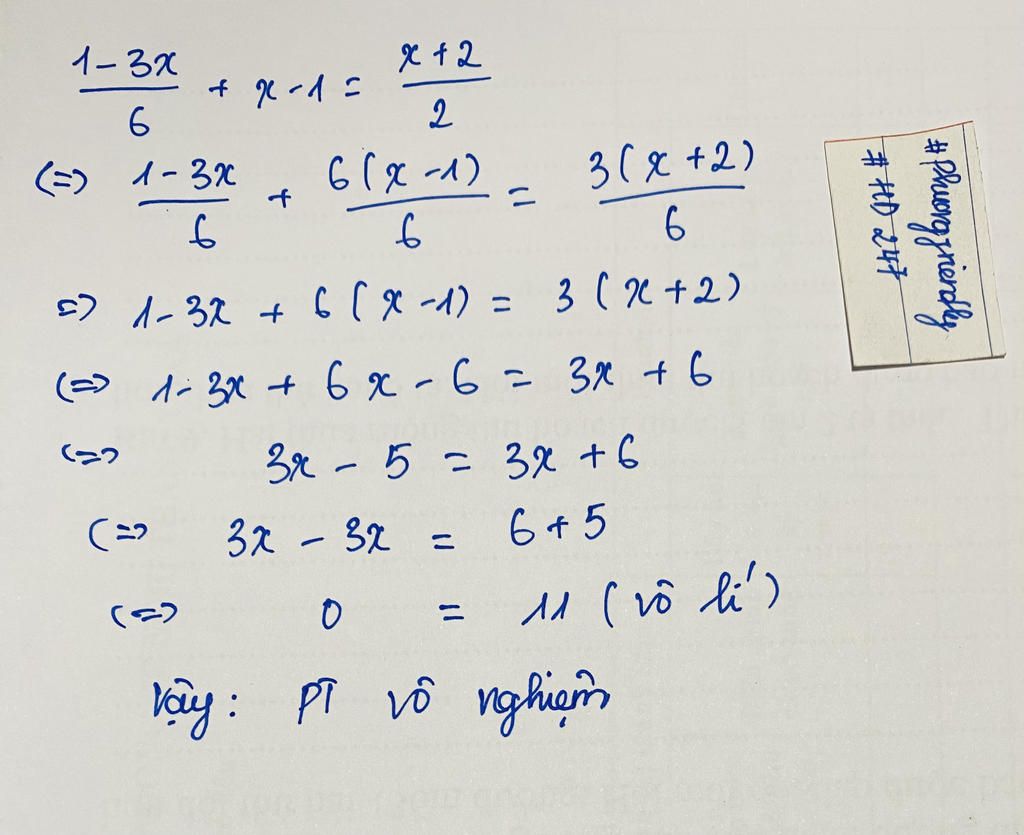 1-3x/6 + x-1 = x+2/2
(=) 1-3x/6 + 6(x-1)/6 = 3(x+2)/6
=) 1-3x + 6(x-1) = 3(x+2)
(=) 1-3x + 6x - 6 = 3x + 6
(=) 3x - 5 = 3x + 6
(=) 3x - 3x = 6 + 5
(=) 0 = 11 (vô lí)
Vậy: PT vô nghiệm
# HD 247